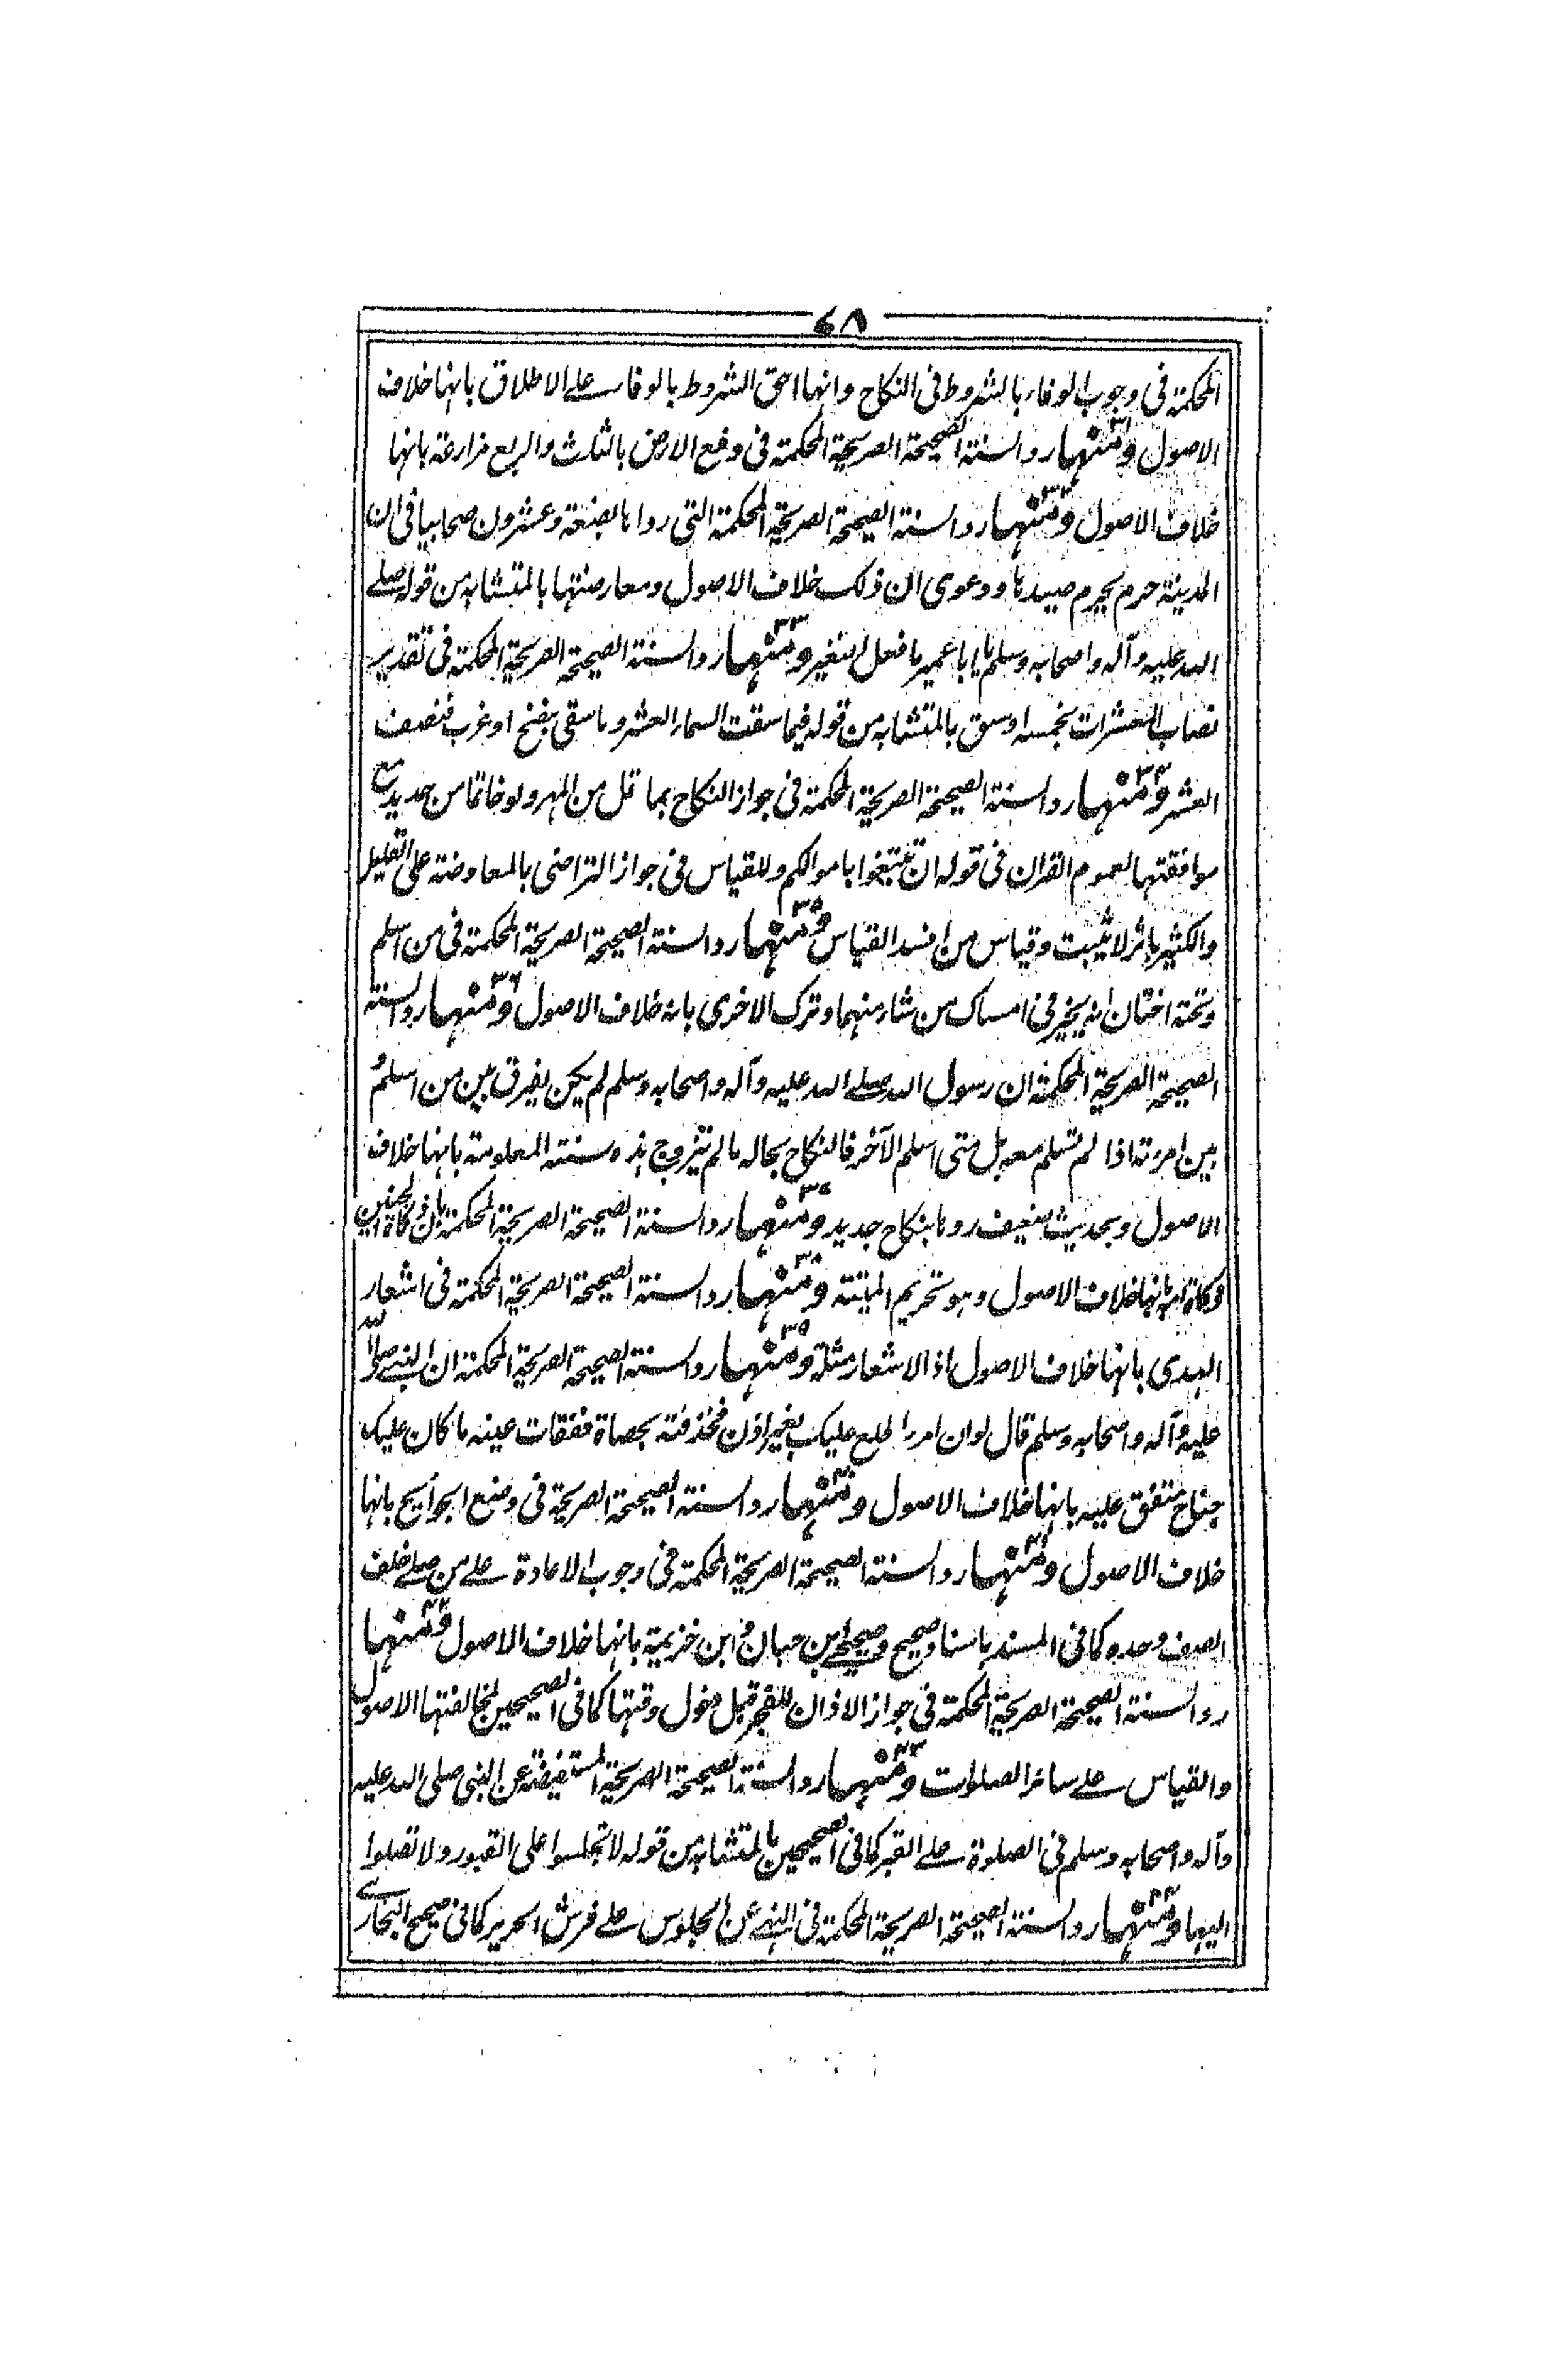 ٧٨
المحكمة فى وجوب الوفاء بالشروط فى النكاح وانها احق الشروط بالوفاء على الاطلاق بانها خلاف
الاصول ومنها ٣١ رد السنة الصحيحة الصريحة المحكمة فى دفع الارض بالثلث والربع مزارعة بانها
خلاف الاصول ومنها ٣٢ رد السنة الصحيحة الصريحة المحكمة التى رواها بضعة وعشرون صحابيا فى ان
المدينة حرم يحرم صيدها ودعوى ان ذلك خلاف الاصول ومعارضتها بالمتشابه من قوله صلى
الله عليه وآله واصحابه وسلم يا ابا عمير ما فعل النغير ومنها ٣٣ رد السنة الصحيحة الصريحة المحكمة فى تقدير
نصاب المعشرات بخمسة اوسق بالمتشابه من قوله فيما سقت السماء العشر وما سقى بنضح او غرب فنصف
العشر ومنها ٣٤ رد السنة الصحيحة الصريحة المحكمة فى جواز النكاح بما قل من المهر ولو خاتما من حديد مع
موافقتها لعموم القران فى قوله ان تبتغوا باموالكم وللقياس فى جواز التراضى بالمعاوضة على القليل
والكثير باثر لا يثبت وقياس من افسد القياس ومنها ٣٥ رد السنة الصحيحة الصريحة المحكمة فى من اسلم
وتحته اختان انه يخير فى امساك من شاء منهما وترك الاخرى بانه خلاف الاصول ومنها ٣٦ رد السنة
الصحيحة الصريحة المحكمة ان رسول الله صلى الله عليه وآله واصحابه وسلم لم يكن يفرق بين من اسلم و
بين امرءته اذا لم تسلم معه بل متى اسلم الآخر فالنكاح بحاله ما لم تتزوج هذه سنته المعلومة بانها خلاف
الاصول وبحديث ضعيف ردها بنكاح جديد ومنها ٣٧ رد السنة الصحيحة الصريحة المحكمة بان ذكاة الجنين
ذكاة امه بانها خلاف الاصول وهو تحريم الميتة ومنها ٣٨ رد السنة الصحيحة الصريحة المحكمة فى اشعار
الهدى بانها خلاف الاصول اذ الاشعار مثلة ومنها ٣٩ رد السنة الصحيحة الصريحة المحكمة ان النبى صلى الله
عليه وآله واصحابه وسلم قال لو ان امرءا اطلع عليك بغير اذن فخذفته بحصاة ففقات عينه ما كان عليك
جناح متفق عليه بانها خلاف الاصول ومنها ٤٠ رد السنة الصحيحة الصريحة فى وضع الجوايح بانها
خلاف الاصول ومنها ٤١ رد السنة الصحيحة الصريحة المحكمة فى وجوب الاعادة على من صلى خلف
الصف وحده كما فى المسند باسناد صحيح وصحيحى ابن حبان و ابن خزيمة بانها خلاف الاصول ومنها ٤٢
رد السنة الصحيحة الصريحة المحكمة فى جواز الاذان للفجر قبل دخول وقتها كما فى الصحيحين لمخالفتها الاصول
والقياس على سائر الصلوات ومنها ٤٣ رد السنة الصحيحة الصريحة المستفيضة عن النبى صلى الله عليه
وآله واصحابه وسلم فى الصلوة على القبر كما فى الصحيحين بالمتشابه من قوله لا تجلسوا على القبور ولا تصلوا
اليها ومنها ٤٤ رد السنة الصحيحة الصريحة المحكمة فى النهى عن الجلوس على فرش الحرير كما فى صحيح البخارى